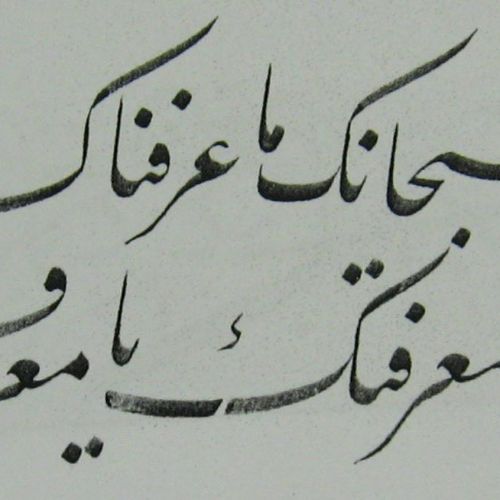 سبحانک ما عرفناک
معرفتک یا معروف